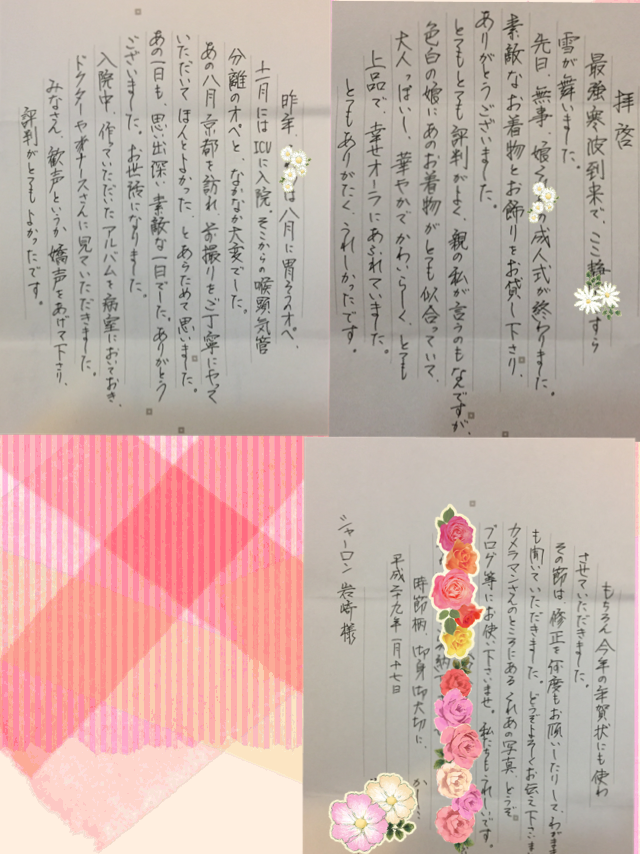 拝啓
最強寒波到来で、ここ すら
雪が舞いました。
先日、無事、娘 の成人式が終わりました。
素敵なお着物とお飾りをお貸し下さり、
ありがとうございました。
とてもとても評判がよく、親の私が言うのもなんですが、
色白の娘にあのお着物がとても似合っていて、
大人っぽいし、華やかでかわいらしく、とても
上品で、幸せオーラにあふれていました。
とてもありがたく、うれしかったです。
昨年、 は八月に胃ろうオペ、
十一月にはICUに入院。そこからの喉頭気管
分離のオペと、なかなか大変でした。
あの八月、京都を訪れ、前撮りをご丁寧にやって
いただいてほんとよかった、とあらためて思いました。
あの一日も、思い出深い素敵な一日でした。ありがとう
ございました。お世話になりました。
入院中、作っていただいたアルバムを病室においておき、
ドクターやナースさんに見ていただきました。
みなさん、歓声というか嬌声をあげて下さり、
評判がとてもよかったです。
もちろん今年の年賀状にも使わ
させていただきました。
その節は、修正を何度もお願いしたりして、わがまま
も聞いていただきました。どうぞよろしくお伝え下さいませ
カメラマンさんのところにある くれあの写真、どうぞ
ブログ等にお使い下さいませ。私たちもうれしいです。
時節柄、御身御大切に、
平成二十九年一月十七日
シャーロン岩崎様